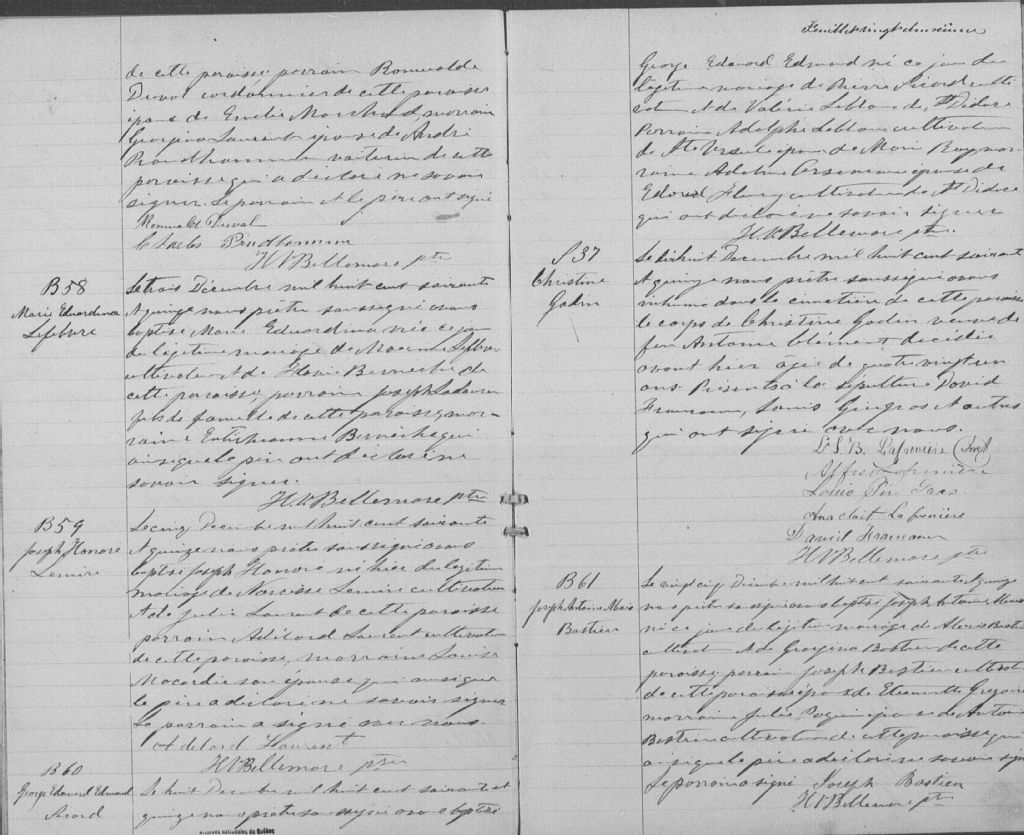 de cette paroisse parrain Romuald
Duval cordonnier de cette paroisse
époux de Emélie Marchand, marraine
Georgina Laurent épouse de André
Prudhomme voiturier de cette
paroisse qui a déclaré ne savoir
signer. Le parrain et le père ont signé
Romuald Duval
Charles Prudhomme
H V Bellemare ptre
B 58
Marie Eduardina
Lefebvre
Le trois Décembre mil huit cent soixante
& quinze nous prêtre soussigné avons
baptisé Marie Eduardina née ce jour
du légitime mariage de Maxime Lefebvre
cultivateur & de
cette paroisse parrain Joseph
fils de famille de cette paroisse mar-
raine qui
ainsi que le père ont déclaré ne
savoir signer.
H. V. Bellemare ptre
B 59
Joseph Honoré
Lemire
Le cinq Décembre mil huit cent soixante
& quinze nous prêtre soussigné avons
baptisé Joseph Honoré né hier du légitime
mariage de Narcisse Lemire cultivateur
& de Julie Laurent de cette paroisse
parrain Adélard Laurent cultivateur
de cette paroisse, marraine Louise
son épouse qui ainsi que
le père a déclaré ne savoir signer
Le parrain a signé avec nous.
Adelard Laurent
H V Bellemare ptre
B 60
George Edouard Edmond
Sicard
Le huit Décembre mil huit cent soixante et
quinze nous prêtre soussigné avons baptisé
Archives nationales du Québec
Feuillet vingt deuxième
George Edouard Edmond né ce jour du
légitime mariage de Pierre Sicard culti
vateur & de Valérie Leblanc de St Didace
Parrain Adolphe Leblanc cultivateur
de Ste Ursule époux de Marie mar
raine Adeline Arseneau épouse de
Edouard Fleury cultivateur de St Didace
qui ont déclaré ne savoir signer
H. V. Bellemare ptre.
S 37
Christine
Gadin
Le dixhuit Décembre mil huit cent soixante
& quinze nous prêtre soussigné avons
inhumé dans le cimetière de cette paroisse
le corps de Christine Gadin veuve de
feu Antoine Clément décédée
avant hier âgée de quatre vingt un
ans. Présents à la sépulture David
Francoeur, Louis & autres
qui ont signé avec nous.
L. S. B. Lafrenière
Lafrenière
Louis
Anaclait Lafrenière
Daniel Francoeur
H V Bellemare ptre
B 61
Joseph Antoine Alexis
Bastien
Le vingt cinq Décembre mil huit cent soixante & quinze
nous prêtre soussigné avons baptisé Joseph Antoine Alexis
né ce jour du légitime mariage de Alexis Bastien
cultivateur & de Georgina Bastien de cette
paroisse, parrain Joseph Bastien cultivateur
de cette paroisse époux de Grégoire
marraine Julie épouse de Antoine
Bastien cultivateur de cette paroisse qui
ainsi que le père a déclaré ne savoir signer
Le parrain a signé Joseph Bastien
H V Bellemare ptre